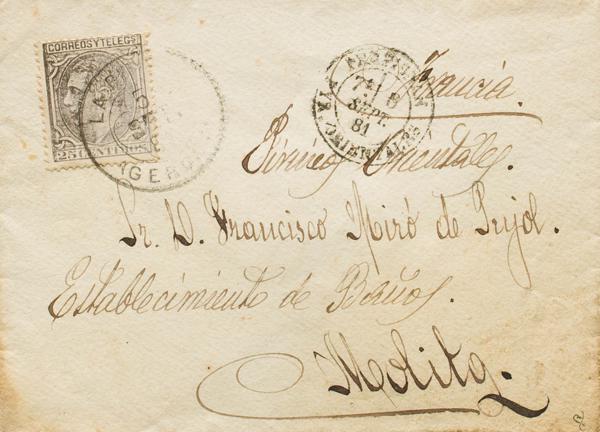 CORREOS Y TELEGS
25 CENTIMOS
PERPIGNAN
7E 8
SEPT.
81
PYR. ORIENTALES
Francia.
Pirineos Orientales.
Sr. D. Francisco Miró de Pujol.
Establecimiento de Baños.
Molitg.